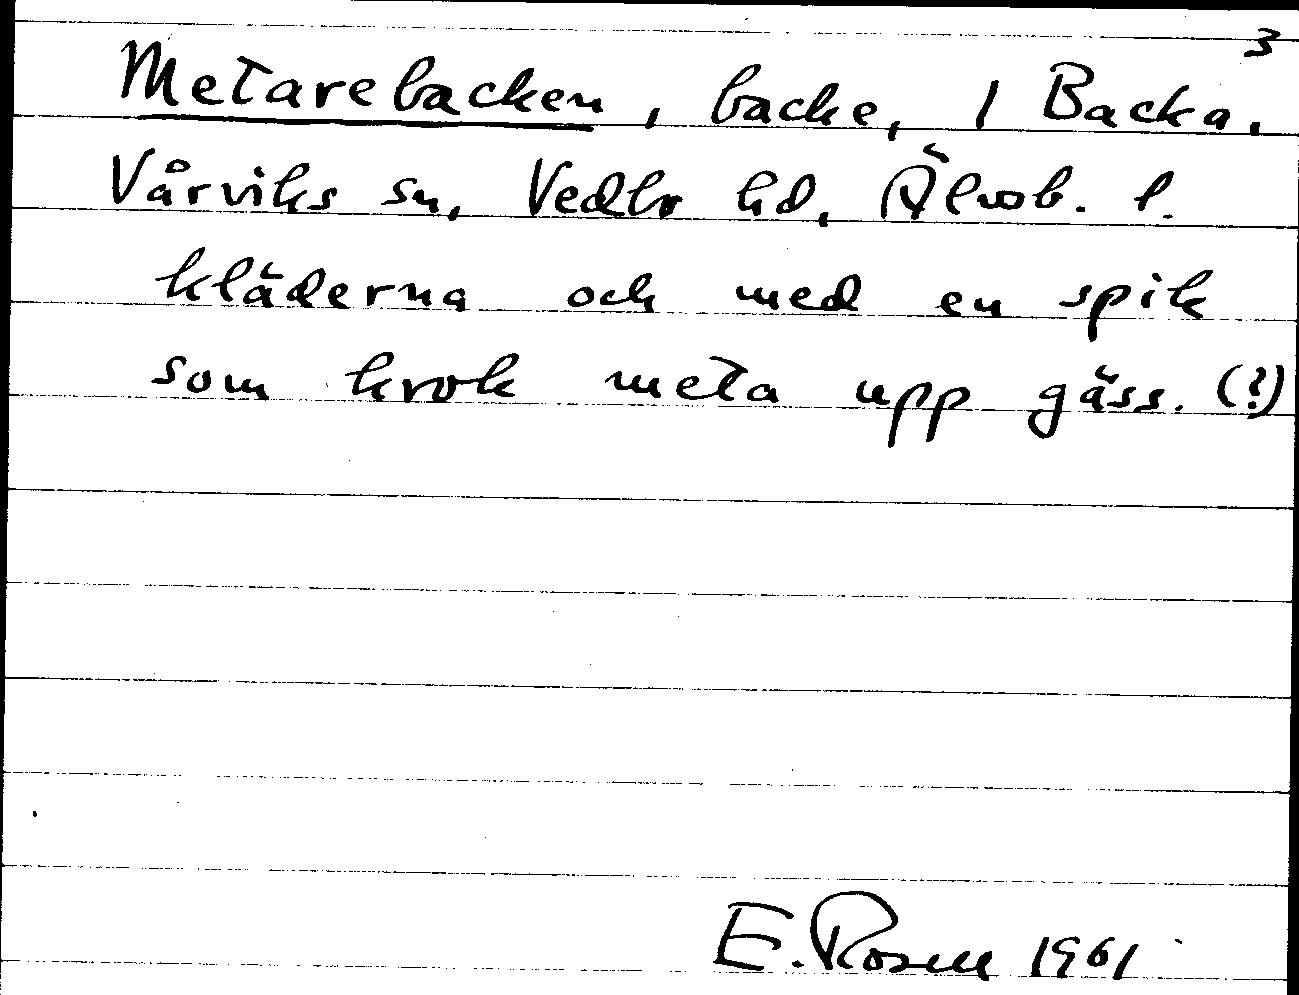 3
Metarebacken, backe, / Backa.
Vårviks sn, Vedbo hd, Älvsb. l.
kläderna och med en spik
som krok meta upp gäss. (?)
E. Rosell 1961